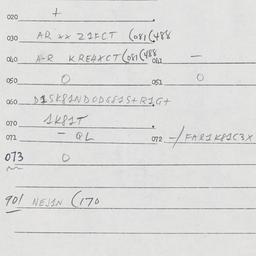 020 +
030 AR xx Z1FCT (081(488
040 A-R KRE4XCT(081(488 041 —
050 0 051 0
060 D1SK81ND0DG81S+R1G+
070 1K81T .
071 — QL 072 -/FAR1K81C3X
073 0
901 NEJ1N (170